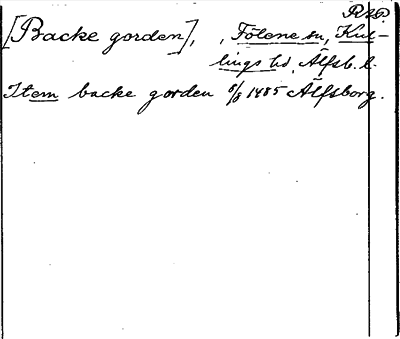 [Backe gorden], , Fölene sn, Kul-
lings hd, Älfsb. l.
Item backe gorden 8/8 1485 Älfsborg.